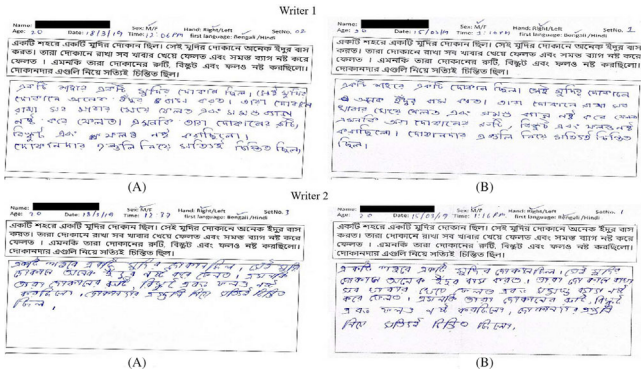 Writer 1
Name: Sex: M/F Hand: Right/Left SetNo. 02
Age: 20 Date: 18/3/19 Time: 12:06 PM first language: Bengali /Hindi
একটি শহরে একটি মুদির দোকান ছিল। সেই মুদির দোকানে অনেক ইঁদুর বাস
করত। তারা দোকানে রাখা সব খাবার খেয়ে ফেলত এবং সমস্ত ব্যাগ নষ্ট করে
ফেলত । এমনকি তারা দোকানের রুটি, বিস্কুট এবং ফলও নষ্ট করছিলো।
দোকানদার এগুলি নিয়ে সত্যিই চিন্তিত ছিল।
একটি শহরে একটি মুদির দোকান ছিল। সেই মুদির
দোকানে অনেক ইঁদুর বাস করত। তারা দোকানে
রাখা সব খাবার খেয়ে ফেলত এবং সমস্ত ব্যাগ
নষ্ট করে ফেলত। এমনকি তারা দোকানের রুটি,
বিস্কুট এবং ফলও নষ্ট করছিলো।
দোকানদার এগুলি নিয়ে সত্যিই চিন্তিত ছিল।
(A)
Name: Sex: M/F Hand: Right/Left SetNo. 1
Age: 20 Date: 15/03/19 Time: first language: Bengali /Hindi
একটি শহরে একটি মুদির দোকান ছিল। সেই মুদির দোকানে অনেক ইঁদুর বাস
করত। তারা দোকানে রাখা সব খাবার খেয়ে ফেলত এবং সমস্ত ব্যাগ নষ্ট করে
ফেলত । এমনকি তারা দোকানের রুটি, বিস্কুট এবং ফলও নষ্ট করছিলো।
দোকানদার এগুলি নিয়ে সত্যিই চিন্তিত ছিল।
একটি শহরে একটি দোকান ছিল। সেই মুদির দোকানে
অনেক ইঁদুর বাস করত। তারা দোকানে রাখা সব
খাবার খেয়ে ফেলত এবং সমস্ত ব্যাগ নষ্ট করে ফেলত
এমনকি তারা দোকানের রুটি, বিস্কুট এবং ফলও নষ্ট
করছিলো। দোকানদার এগুলি নিয়ে সত্যিই চিন্তিত
ছিল।
(B)
Writer 2
Name: Sex: M/F Hand: Right/Left SetNo. 3
Age: 20 Date: 18/3/19 Time: 12:33 first language: Bengali /Hindi
একটি শহরে একটি মুদির দোকান ছিল। সেই মুদির দোকানে অনেক ইঁদুর বাস
করত। তারা দোকানে রাখা সব খাবার খেয়ে ফেলত এবং সমস্ত ব্যাগ নষ্ট করে
ফেলত । এমনকি তারা দোকানের রুটি, বিস্কুট এবং ফলও নষ্ট করছিলো।
দোকানদার এগুলি নিয়ে সত্যিই চিন্তিত ছিল।
একটি শহরে একটি মুদির দোকান ছিল, সেই মুদির
দোকানে অনেক ইঁদুর নষ্ট করে ফেলত, এমনকি
তারা দোকানের রুটি বিস্কুট এবং ফলও নষ্ট
করছিলো, দোকানদার এগুলি নিয়ে সত্যিই চিন্তিত
ছিল,
(A)
Name: Sex: M/F Hand: Right/Left SetNo. 1
Age: 20 Date: 15/03/19 Time: 1:16 PM first language: Bengali /Hindi
একটি শহরে একটি মুদির দোকান ছিল। সেই মুদির দোকানে অনেক ইঁদুর বাস
করত। তারা দোকানে রাখা সব খাবার খেয়ে ফেলত এবং সমস্ত ব্যাগ নষ্ট করে
ফেলত । এমনকি তারা দোকানের রুটি, বিস্কুট এবং ফলও নষ্ট করছিলো।
দোকানদার এগুলি নিয়ে সত্যিই চিন্তিত ছিল।
একটি শহরে একটি মুদির দোকান ছিল, সেই মুদির
দোকানে অনেক ইঁদুর বাস করত, তারা দোকানে রাখা
সব খাবার খেয়ে ফেলত এবং সমস্ত ব্যাগ নষ্ট
করে ফেলত, এমনকি তারা দোকানের রুটি, বিস্কুট
এবং ফলও নষ্ট করছিলো, দোকানদার এগুলি
নিয়ে সত্যিই চিন্তিত ছিল,
(B)